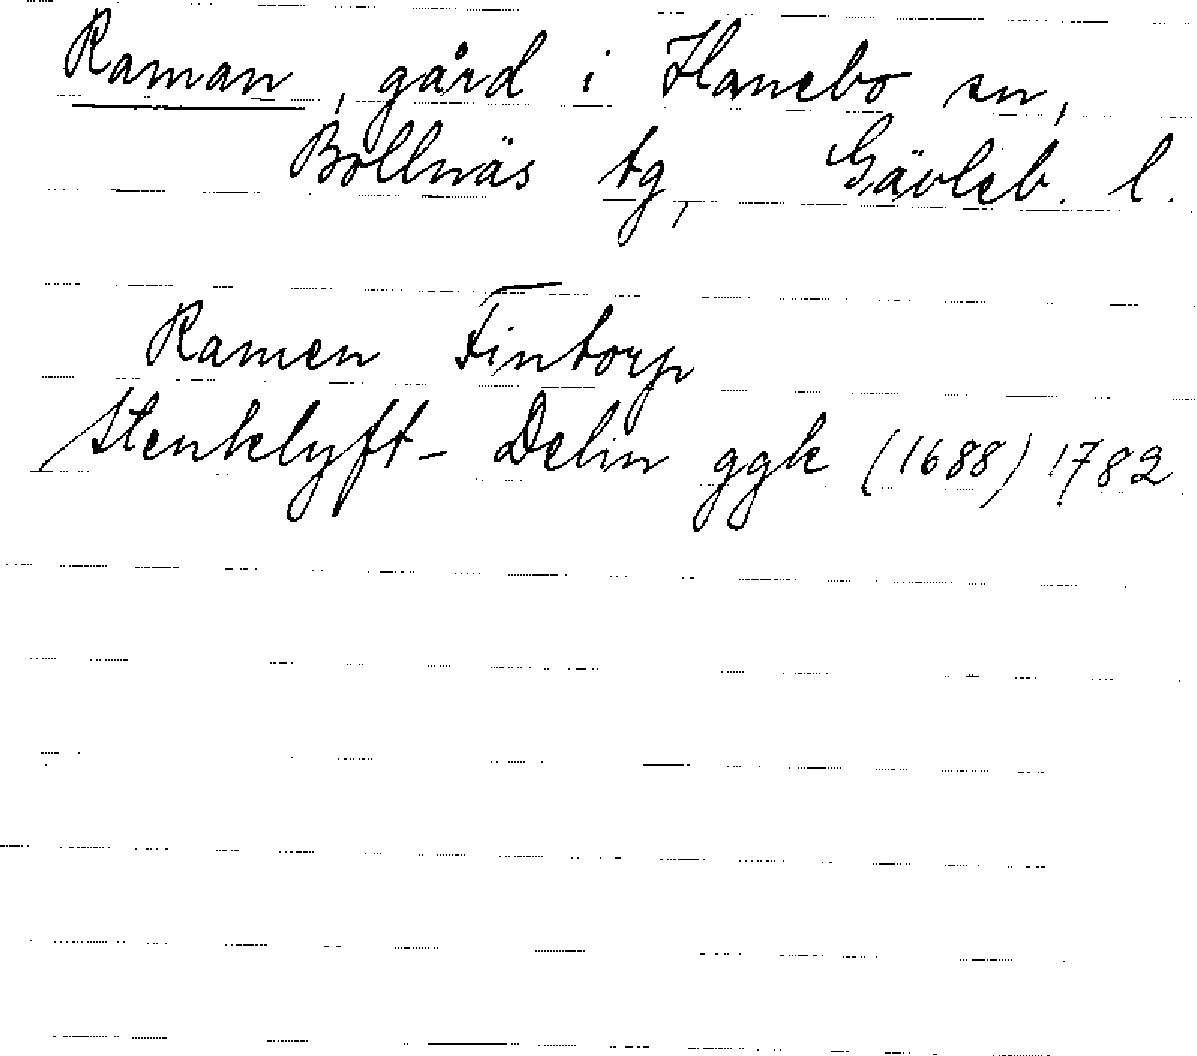 Raman, gård i Hanebo sn,
Bollnäs tg, Gävleb. l.
Ramen Fintorp
Stenklyft- Delin ggk (1688) 1782